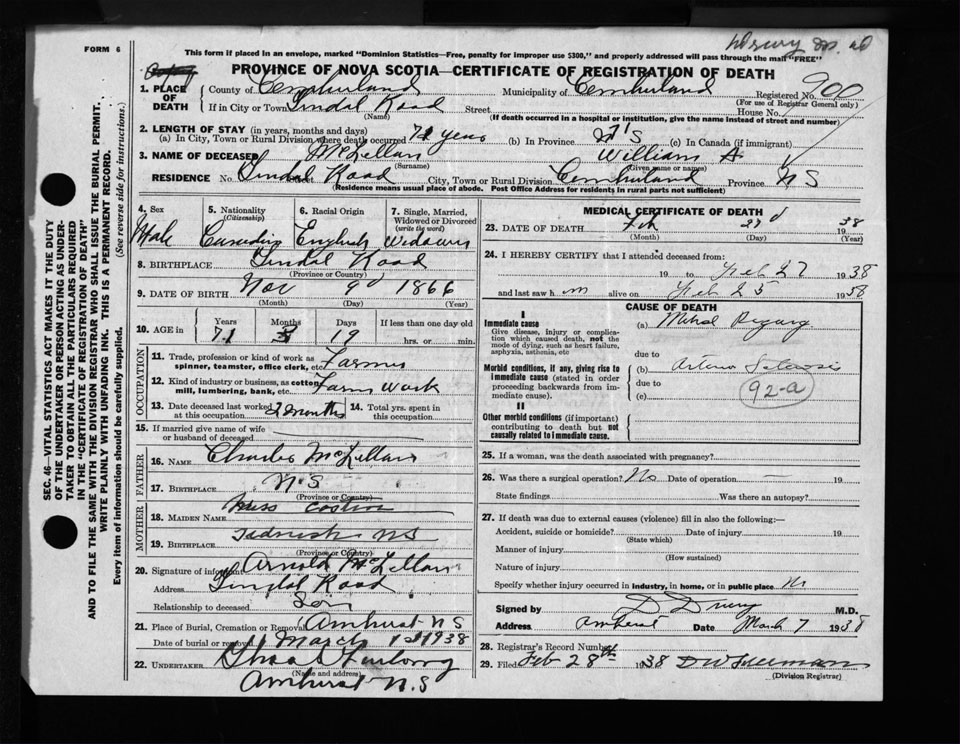 FORM 6
This form if placed in an envelope, marked "Dominion Statistics—Free, penalty for improper use $300," and properly addressed will pass through the mail "FREE"
PROVINCE OF NOVA SCOTIA—CERTIFICATE OF REGISTRATION OF DEATH
1. PLACE OF DEATH
County of Cumberland Municipality of Cumberland Registered No. 900
(For use of Registrar General only)
If in City or Town Tindal Road Street House No.
(Name) (If death occurred in a hospital or institution, give the name instead of street and number)
2. LENGTH OF STAY (in years, months and days)
(a) In City, Town or Rural Division where death occurred 71 years (b) In Province N S (c) In Canada (if immigrant)
3. NAME OF DECEASED McLellan William A.
(Surname) (Given name or names)
RESIDENCE No. Tindal Road Street City, Town or Rural Division Cumberland Province N S
(Residence means usual place of abode. Post Office Address for residents in rural parts not sufficient)
SEC. 46—VITAL STATISTICS ACT MAKES IT THE DUTY
OF THE UNDERTAKER OR PERSON ACTING AS UNDER-
TAKER TO OBTAIN ALL THE PARTICULARS REQUIRED
IN THE "CERTIFICATE OF REGISTRATION OF DEATH"
AND TO FILE THE SAME WITH THE DIVISION REGISTRAR WHO SHALL ISSUE THE BURIAL PERMIT.
WRITE PLAINLY WITH UNFADING INK. THIS IS A PERMANENT RECORD.
Every item of information should be carefully supplied. (See reverse side for instructions.)
4. Sex 5. Nationality (Citizenship) 6. Racial Origin 7. Single, Married, Widowed or Divorced (write the word)
Male Canadian English Widower
8. BIRTHPLACE Tindal Road
(Province or Country)
9. DATE OF BIRTH Nov 9 1866
(Month) (Day) (Year)
10. AGE in Years Months Days If less than one day old
71 3 19 hrs. or min.
OCCUPATION
11. Trade, profession or kind of work as spinner, teamster, office clerk, etc. Farmer
12. Kind of industry or business, as cotton mill, lumbering, bank, etc. Farm Work
13. Date deceased last worked at this occupation months 14. Total yrs. spent in this occupation
15. If married give name of wife or husband of deceased
FATHER
16. NAME Charles McLellan
17. BIRTHPLACE N S
(Province or Country)
MOTHER
18. MAIDEN NAME Miss
19. BIRTHPLACE Tidnish NS
(Province or Country)
20. Signature of informant Arnold McLellan
Address Tindal Road
Relationship to deceased Son
21. Place of Burial, Cremation or Removal Amherst N S
Date of burial or removal March 1st 1938
22. UNDERTAKER Furlong
(Name and address)
Amherst N.S
MEDICAL CERTIFICATE OF DEATH
23. DATE OF DEATH Feb 27 1938
(Month) (Day) (Year)
24. I HEREBY CERTIFY that I attended deceased from:
19 to Feb 27 1938
and last saw h m alive on Feb 25 1938
CAUSE OF DEATH
I
Immediate cause
Give disease, injury or complication which caused death, not the mode of dying, such as heart failure, asphyxia, asthenia, etc
(a) Mitral Regurg
due to
Morbid conditions, if any, giving rise to immediate cause (stated in order proceeding backwards from immediate cause).
(b) Arterio Sclerosis
due to
(c) 92-a
II
Other morbid conditions (if important) contributing to death but not causally related to immediate cause.
25. If a woman, was the death associated with pregnancy?
26. Was there a surgical operation? No Date of operation 19
State findings Was there an autopsy?
27. If death was due to external causes (violence) fill in also the following:—
Accident, suicide or homicide? Date of injury 19
(State which)
Manner of injury
(How sustained)
Nature of injury
Specify whether injury occurred in industry, in home, or in public place
Signed by D Drury M.D.
Address Amherst Date March 7 1938
28. Registrar's Record Number
29. Filed Feb 28th 1938 D W Freeman
(Division Registrar)